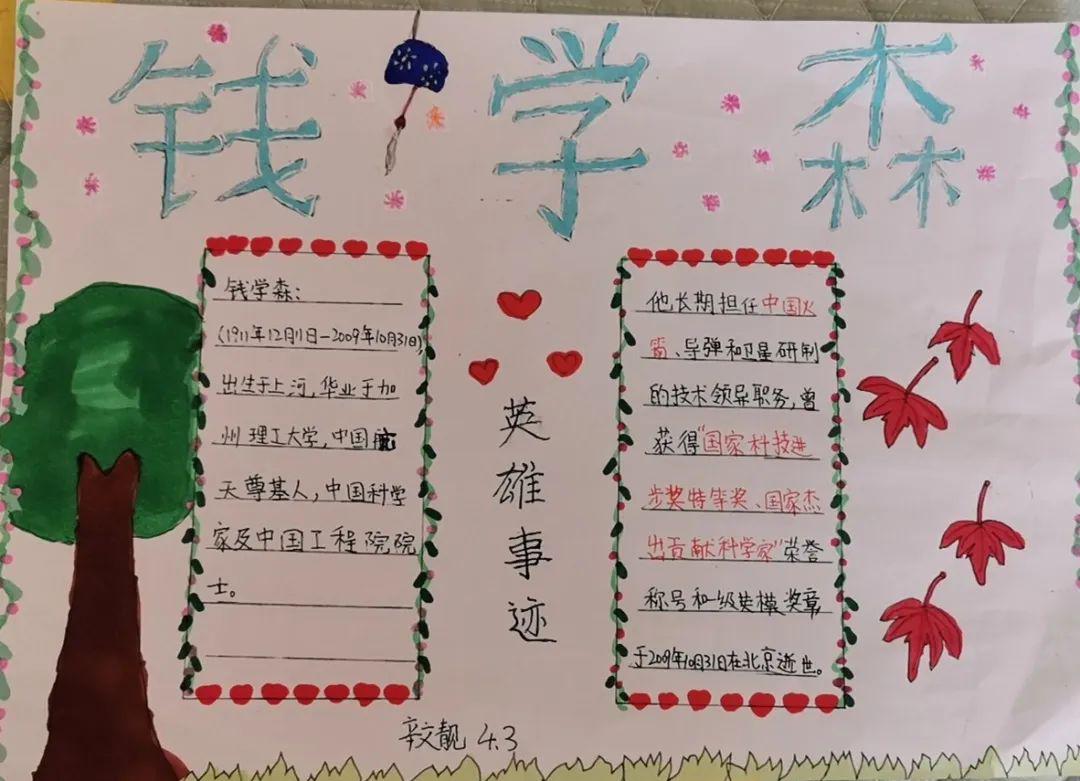 钱学森
钱学森:
(1911年12月11日-2009年10月31日),
出生于上河,华业于加
州理工大学,中国航
天尊基人,中国科学
家及中国工程院院
士。
英雄事迹
他长期担任中国火
箭、导弹和卫星研制
的技术领导职务,曾
获得"国家科技进
步奖特等奖、国家杰
出贡献科学家"荣誉
称号和一级英模奖章
于2009年10月31日在北京逝世。
辛文靓 4.3